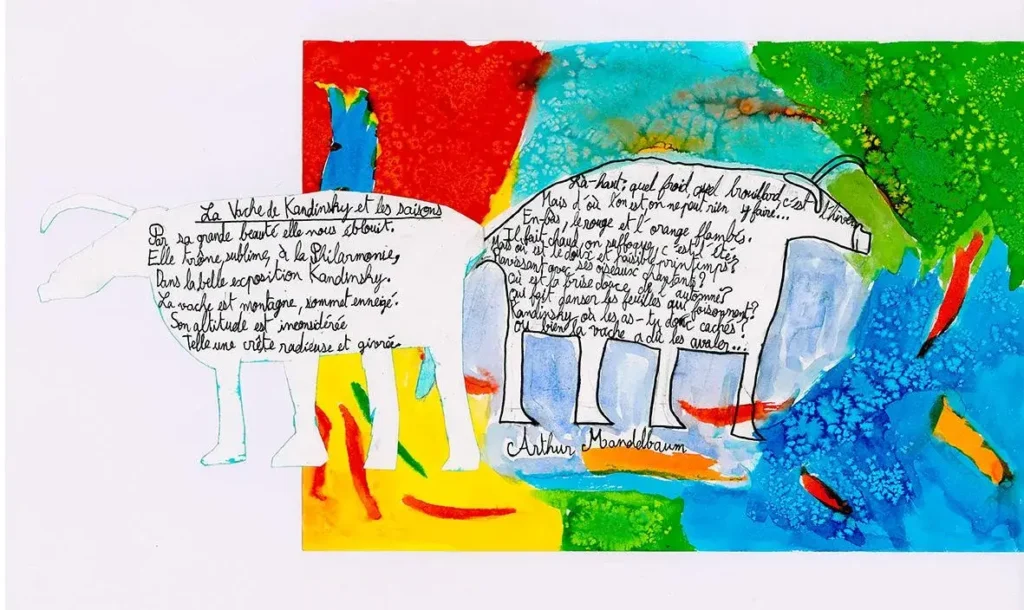 La Vache de Kandinsky et les saisons
Par sa grande beauté elle nous éblouit.
Elle trône, sublime, à la Philarmonie,
Dans la belle exposition Kandinsky.
La vache est montagne, sommet enneigé.
Son altitude est inconsidérée
Telle une crête radieuse et givrée.
Là-haut, quel froid, quel brouillard, c'est l'hiver
Mais d'où l'on est, on ne peut rien y faire...
En-bas, le rouge et l'orange flambés.
Il fait chaud, on suffoque, c'est l'été.
Mais où est le doux et paisible printemps?
Ravissant avec ses oiseaux chantants?
Où est la brise douce de l'automne?
Qui fait danser les feuilles qui foisonnent?
Kandinsky, où les as-tu donc cachés?
Ou bien la vache a dû les avaler...
Arthur Mandelbaum